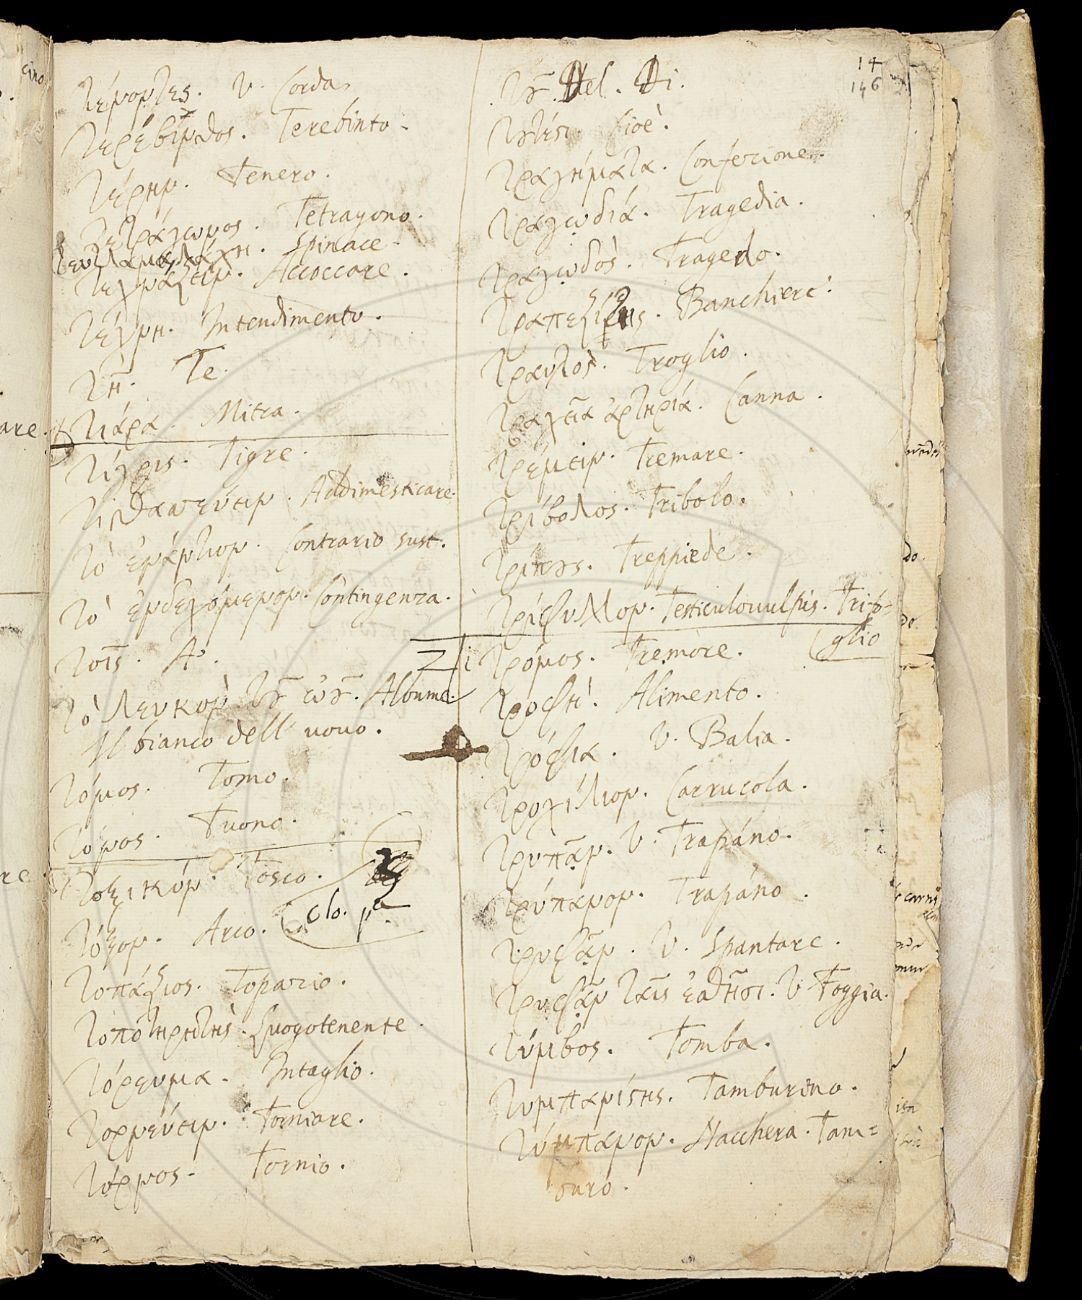 14
146
τένοντες. V. Corda.
τερέβινθος. Terebinto.
τέρην. Tenero.
τετράγωνος. Tetragono.
Spinace.
Accoccare.
τέχνη. Intendimento.
τῆ. Te.
τιάρα. Mitra.
τίγρις. Tigre.
τιθασεύειν. Addimesticare.
τὸ ἐνάντιον. Contrario sust.
τὸ ἐνδεχόμενον. Contingenza.
τοῖς. A'.
τὸ λευκὸν τοῦ ὠοῦ. Albume
Il bianco dell' uovo.
τόμος. Tomo.
τόνος. Tuono.
τοξικόν. Tosco.
τόξον. Arco.
τοπάζιος. Topazio.
τοποτηρητὴς. Luogotenente.
τόρευμα. Intaglio.
τορνεύειν. Torniare.
τόρνος. Tornio.
τοῦ. Del. Di.
τουτέστι. Cioè.
τραγήματα. Confezione.
τραγωδιά. Tragedia.
τραγωδὸς. Tragedo.
τραπεζίτης. Banchiere.
τραυλὸς. Troglio.
τραχεῖα ἀρτηριά. Canna.
τρέμειν. Tremare.
τρίβολος. Tribolo.
τρίπους. Treppiede.
τρίφυλλον. Testiculouulpis. Trifo-
glio
τρόμος. Tremore.
τροφὴ. Alimento.
τρόφια. V. Balia.
τροχίλιον. Carrucola.
τρυπᾶν. V. Trapáno.
τρύπανον. Trapáno.
τρυφᾶν. V. Spantare.
τρυφᾶν ταῖς ἐσθῆσι. V. Foggia.
τύμβος. Tomba.
τυμπανίστης. Tamburino.
τύμπανον. Nacchera. Tam=
buro.